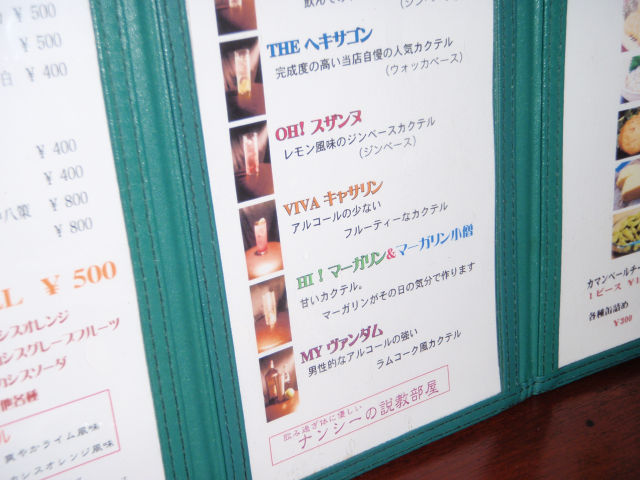 ¥ 500
¥ 500
白 ¥ 400
¥ 400
¥ 400
八策 ¥ 800
¥ 800
¥ 500
シスオレンジ
シスグレープフルーツ
シスソーダ
他各種
爽やかライム風味
シスオレンジ風味
(ジンベース)
THE ヘキサゴン
完成度の高い当店自慢の人気カクテル
(ウォッカベース)
OH! スザンヌ
レモン風味のジンベースカクテル
(ジンベース)
VIVA キャサリン
アルコールの少ない
フルーティーなカクテル
HI！マーガリン&マーガリン小僧
甘いカクテル。
マーガリンがその日の気分で作ります
MY ヴァンダム
男性的なアルコールの強い
ラムコーク風カクテル
飲み過ぎ体に優しい
ナンシーの説教部屋
カマンベールチー
1ピース ¥1
各種缶詰め
¥300